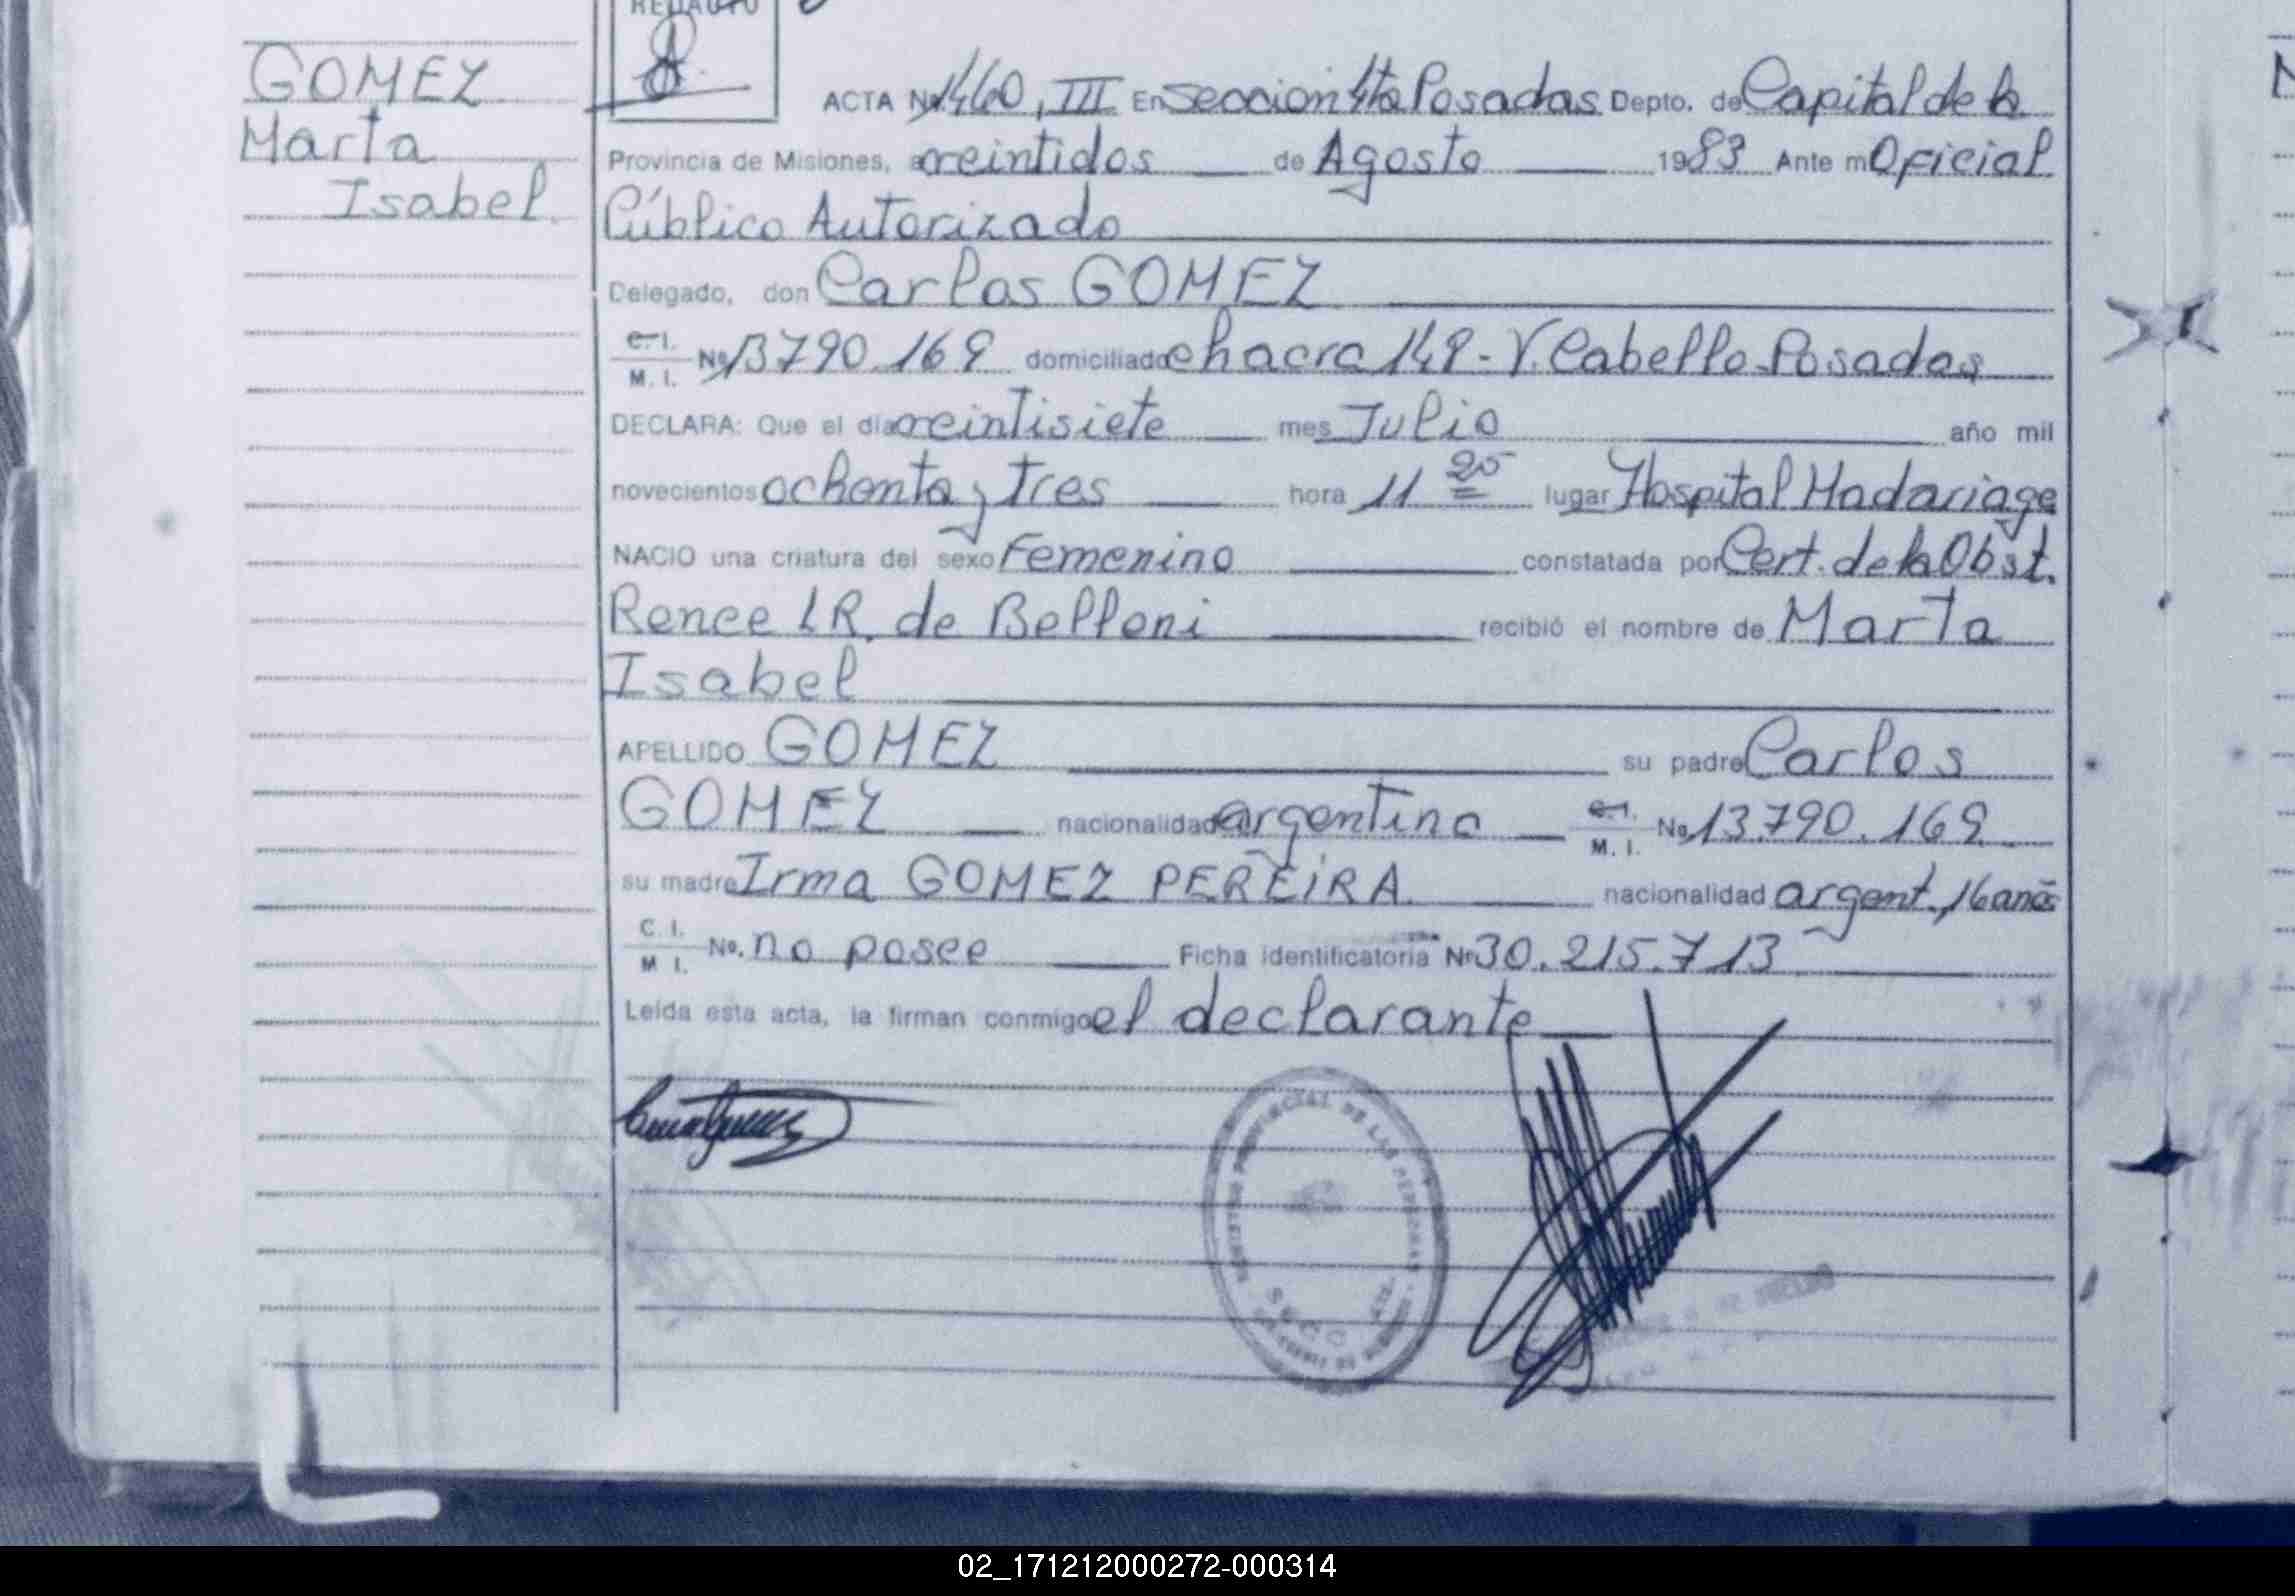 GOMEZ
Marta
Isabel
REDACTO
ACTA Nº 1460, III En Seccion 4ta Posadas Depto. de Capital de la
Provincia de Misiones, a veintidos de Agosto 1983 Ante mi Oficial
Público Autorizado
Delegado, don Carlos GOMEZ
C. I.
M. I. Nº 13790.169 domiciliado chacra 149 - V. Cabello - Posadas
DECLARA: Que el dia veintisiete mes Julio año mil
novecientos ochenta y tres hora 11 25 lugar Hospital Madariaga
NACIO una criatura del sexo Femenino constatada por Cert. de la Obst.
Renee L R. de Belloni recibió el nombre de Marta
Isabel
APELLIDO GOMEZ su padre Carlos
GOMEZ nacionalidad argentina C. I. M. I. Nº 13.790.169
su madre Irma GOMEZ PEREIRA nacionalidad argent., 16 años
C. I.
M I. Nº. no posee Ficha identificatoria Nº 30.215.713
Leída esta acta, la firman conmigo el declarante
PROVINCIAL DE LAS PERSONAS
02_171212000272-000314